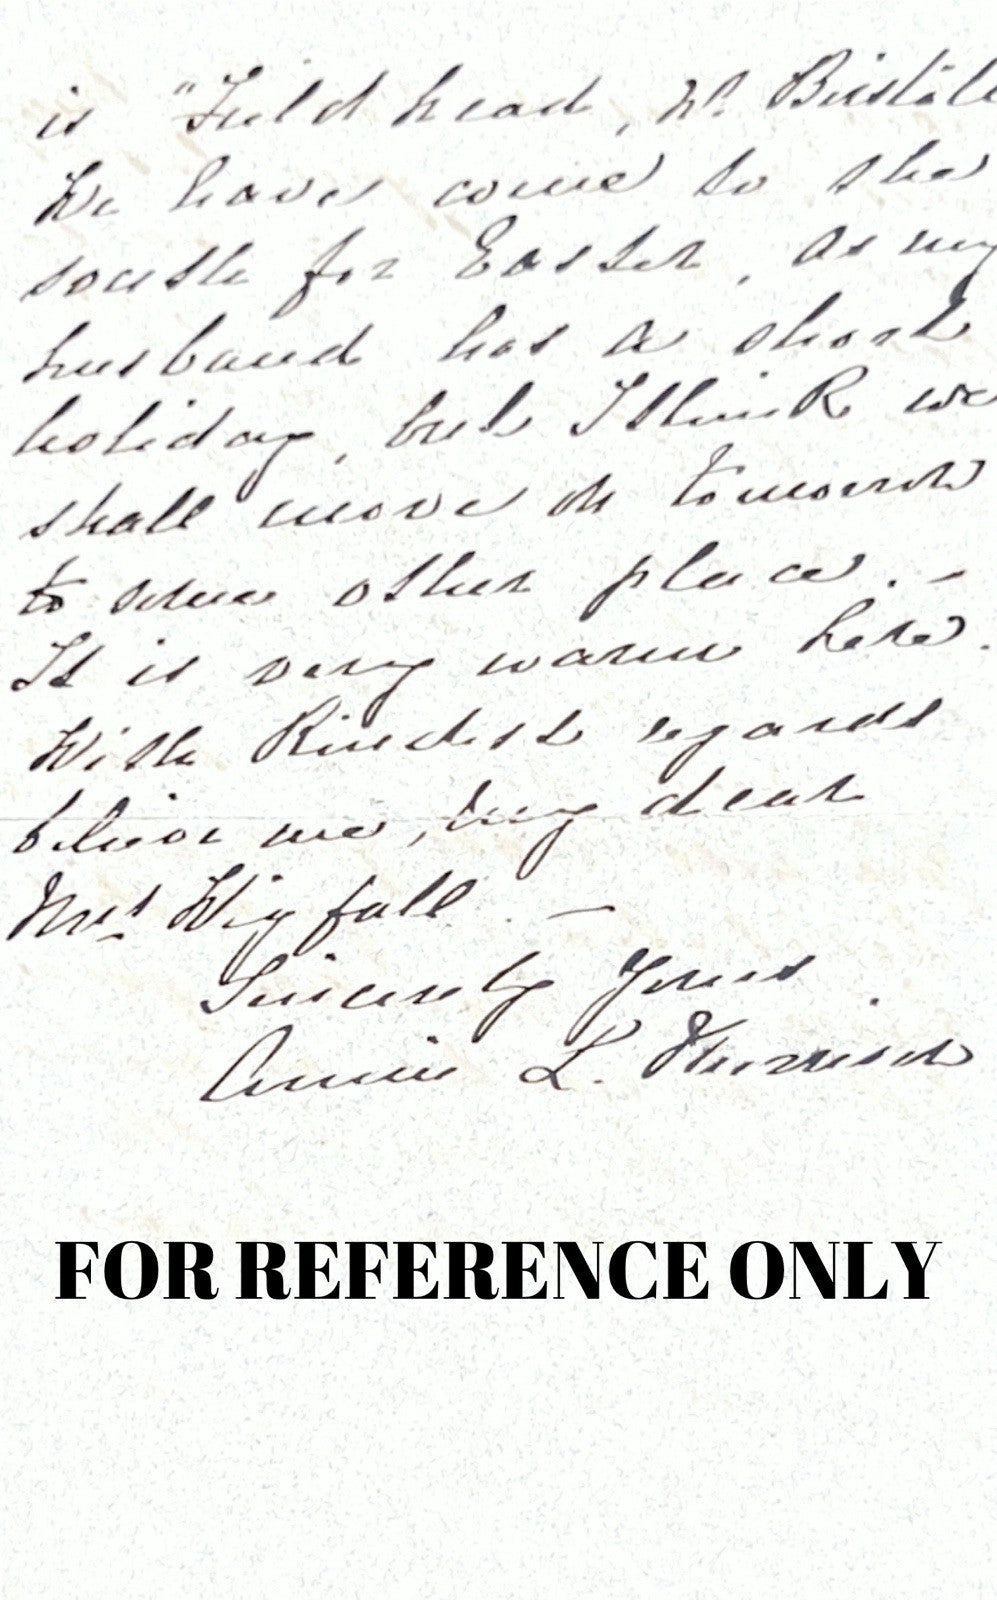 is "Field head, Nr. Birstall
We have come to the
south for Easter, as my
husband has a short
holiday, but I think we
shall move on tomorrow
to some other place. -
It is very warm here.
With kindest regards
believe me, my dear
Mrs Wigfall. -
Sincerely Yours
Annie L.
FOR REFERENCE ONLY